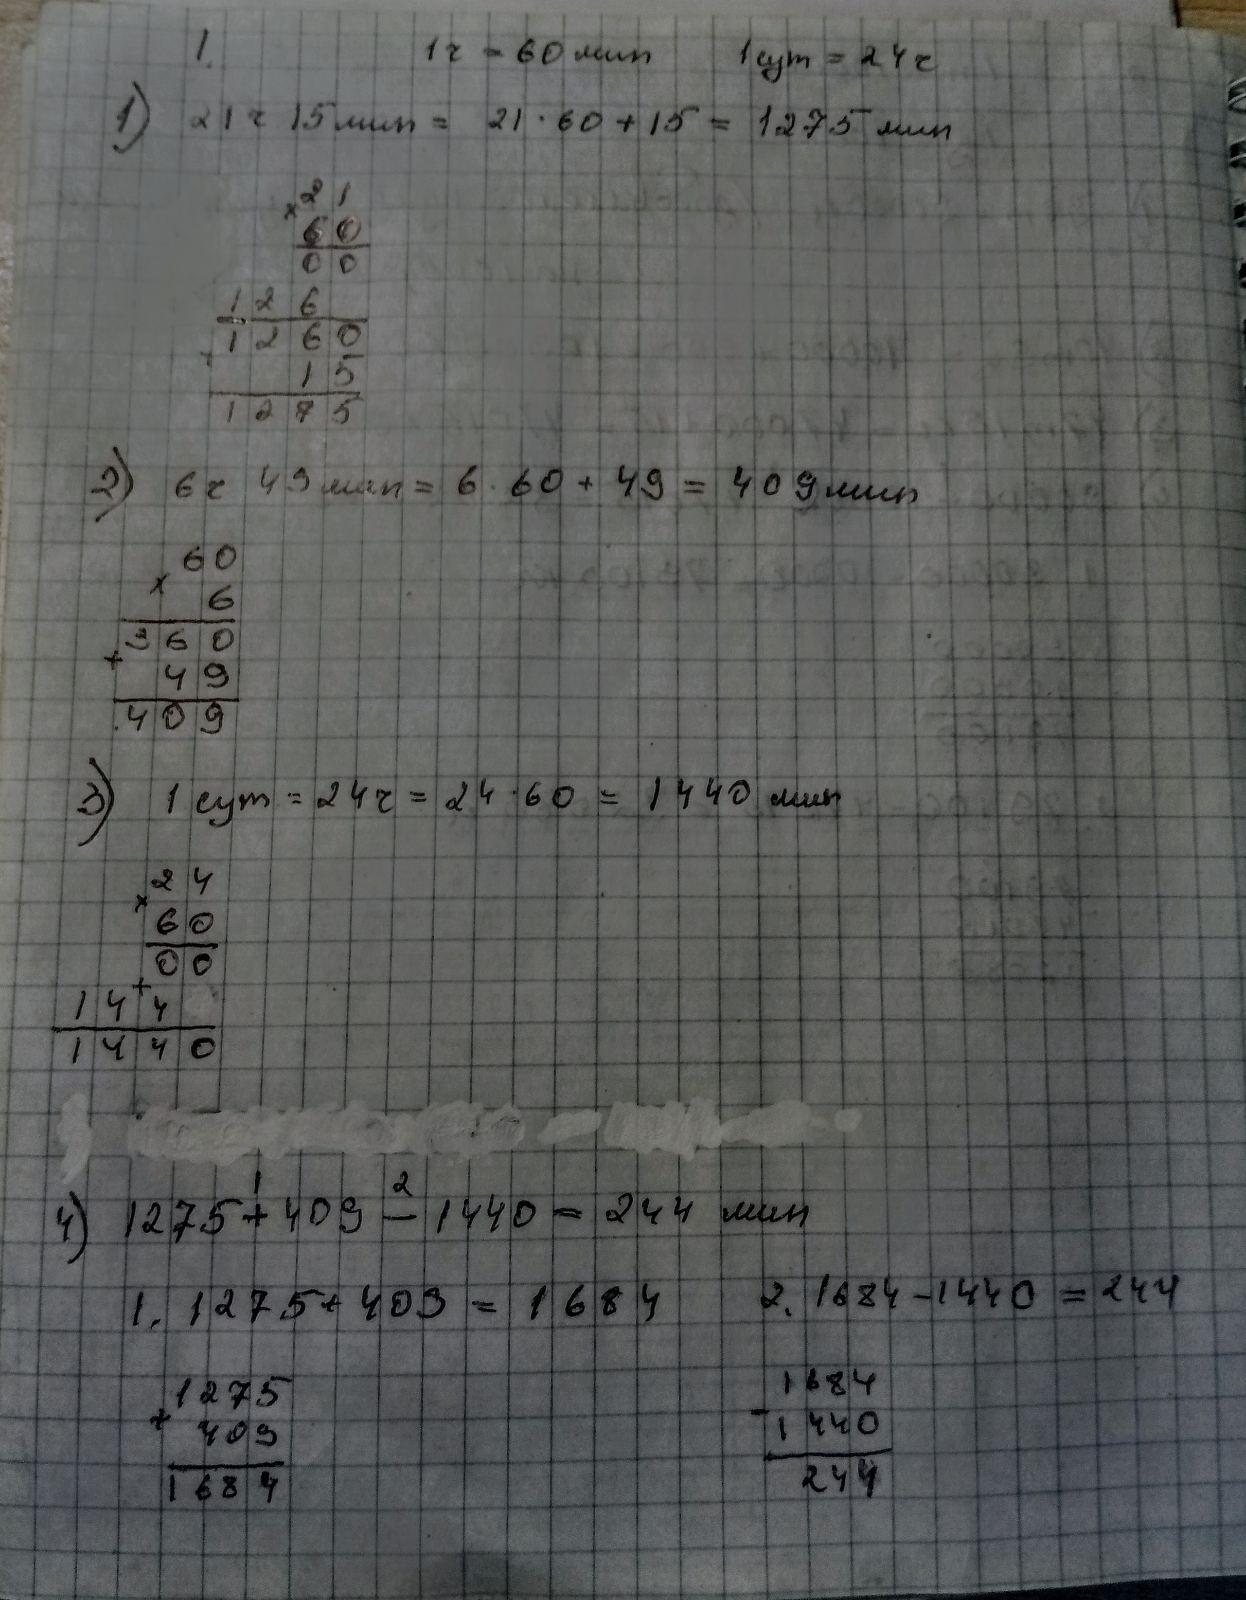 1. 1ч = 60 мин 1 сут = 24 ч
1) 21 ч 15 мин = 21 · 60 + 15 = 1275 мин
× 21
60
00
126
1260
+
15
1275
2) 6 ч 49 мин = 6 · 60 + 49 = 409 мин
60
×
6
360
+
49
409
3) 1 сут = 24 ч = 24 · 60 = 1440 мин
24
×
60
00
+
144
1440
1 2
4) 1275 + 409 – 1440 = 244 мин
1. 1275 + 409 = 1684 2. 1684 – 1440 = 244
1275 1684
+ –
409 1440
1684 244